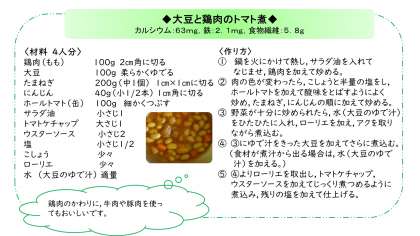 ◆大豆と鶏肉のトマト煮◆
カルシウム：63mg，鉄：2．1mg，食物繊維：5．8g
〈材料 4人分〉
鶏肉（もも） 100g 2cm角に切る
大豆 100g 柔らかくゆでる
たまねぎ 200g（中1個） 1cm×1cmに切る
にんじん 40g（小1／2本）1cm角に切る
ホールトマト（缶） 100g 細かくつぶす
サラダ油 小さじ1
トマトケチャップ 大さじ1
ウスターソース 小さじ2
塩 小さじ1／2
こしょう 少々
ローリエ 少々
水（大豆のゆで汁）適量
〈作り方〉
① 鍋を火にかけて熱し、サラダ油を入れて
なじませ，鶏肉を加えて炒める。
② 肉の色が変わったら、こしょうと半量の塩をし，
ホールトマトを加えて酸味をとばすようによく
炒め，たまねぎ，にんじんの順に加えて炒める。
③ 野菜が十分に炒められたら，水（大豆のゆで汁）
をひたひたに入れ，ローリエを加え，アクを取り
ながら煮込む。
④ ③にゆで汁をきった大豆を加えてさらに煮込む。
（食材が煮汁から出る場合は，水（大豆のゆで
汁）を加える。）
⑤ ④よりローリエを取出し，トマトケチャップ，
ウスターソースを加えてじっくり煮つめるように
煮込み，残りの塩を加えて仕上げる。
鶏肉のかわりに，牛肉や豚肉を使っ
てもおいしいです。